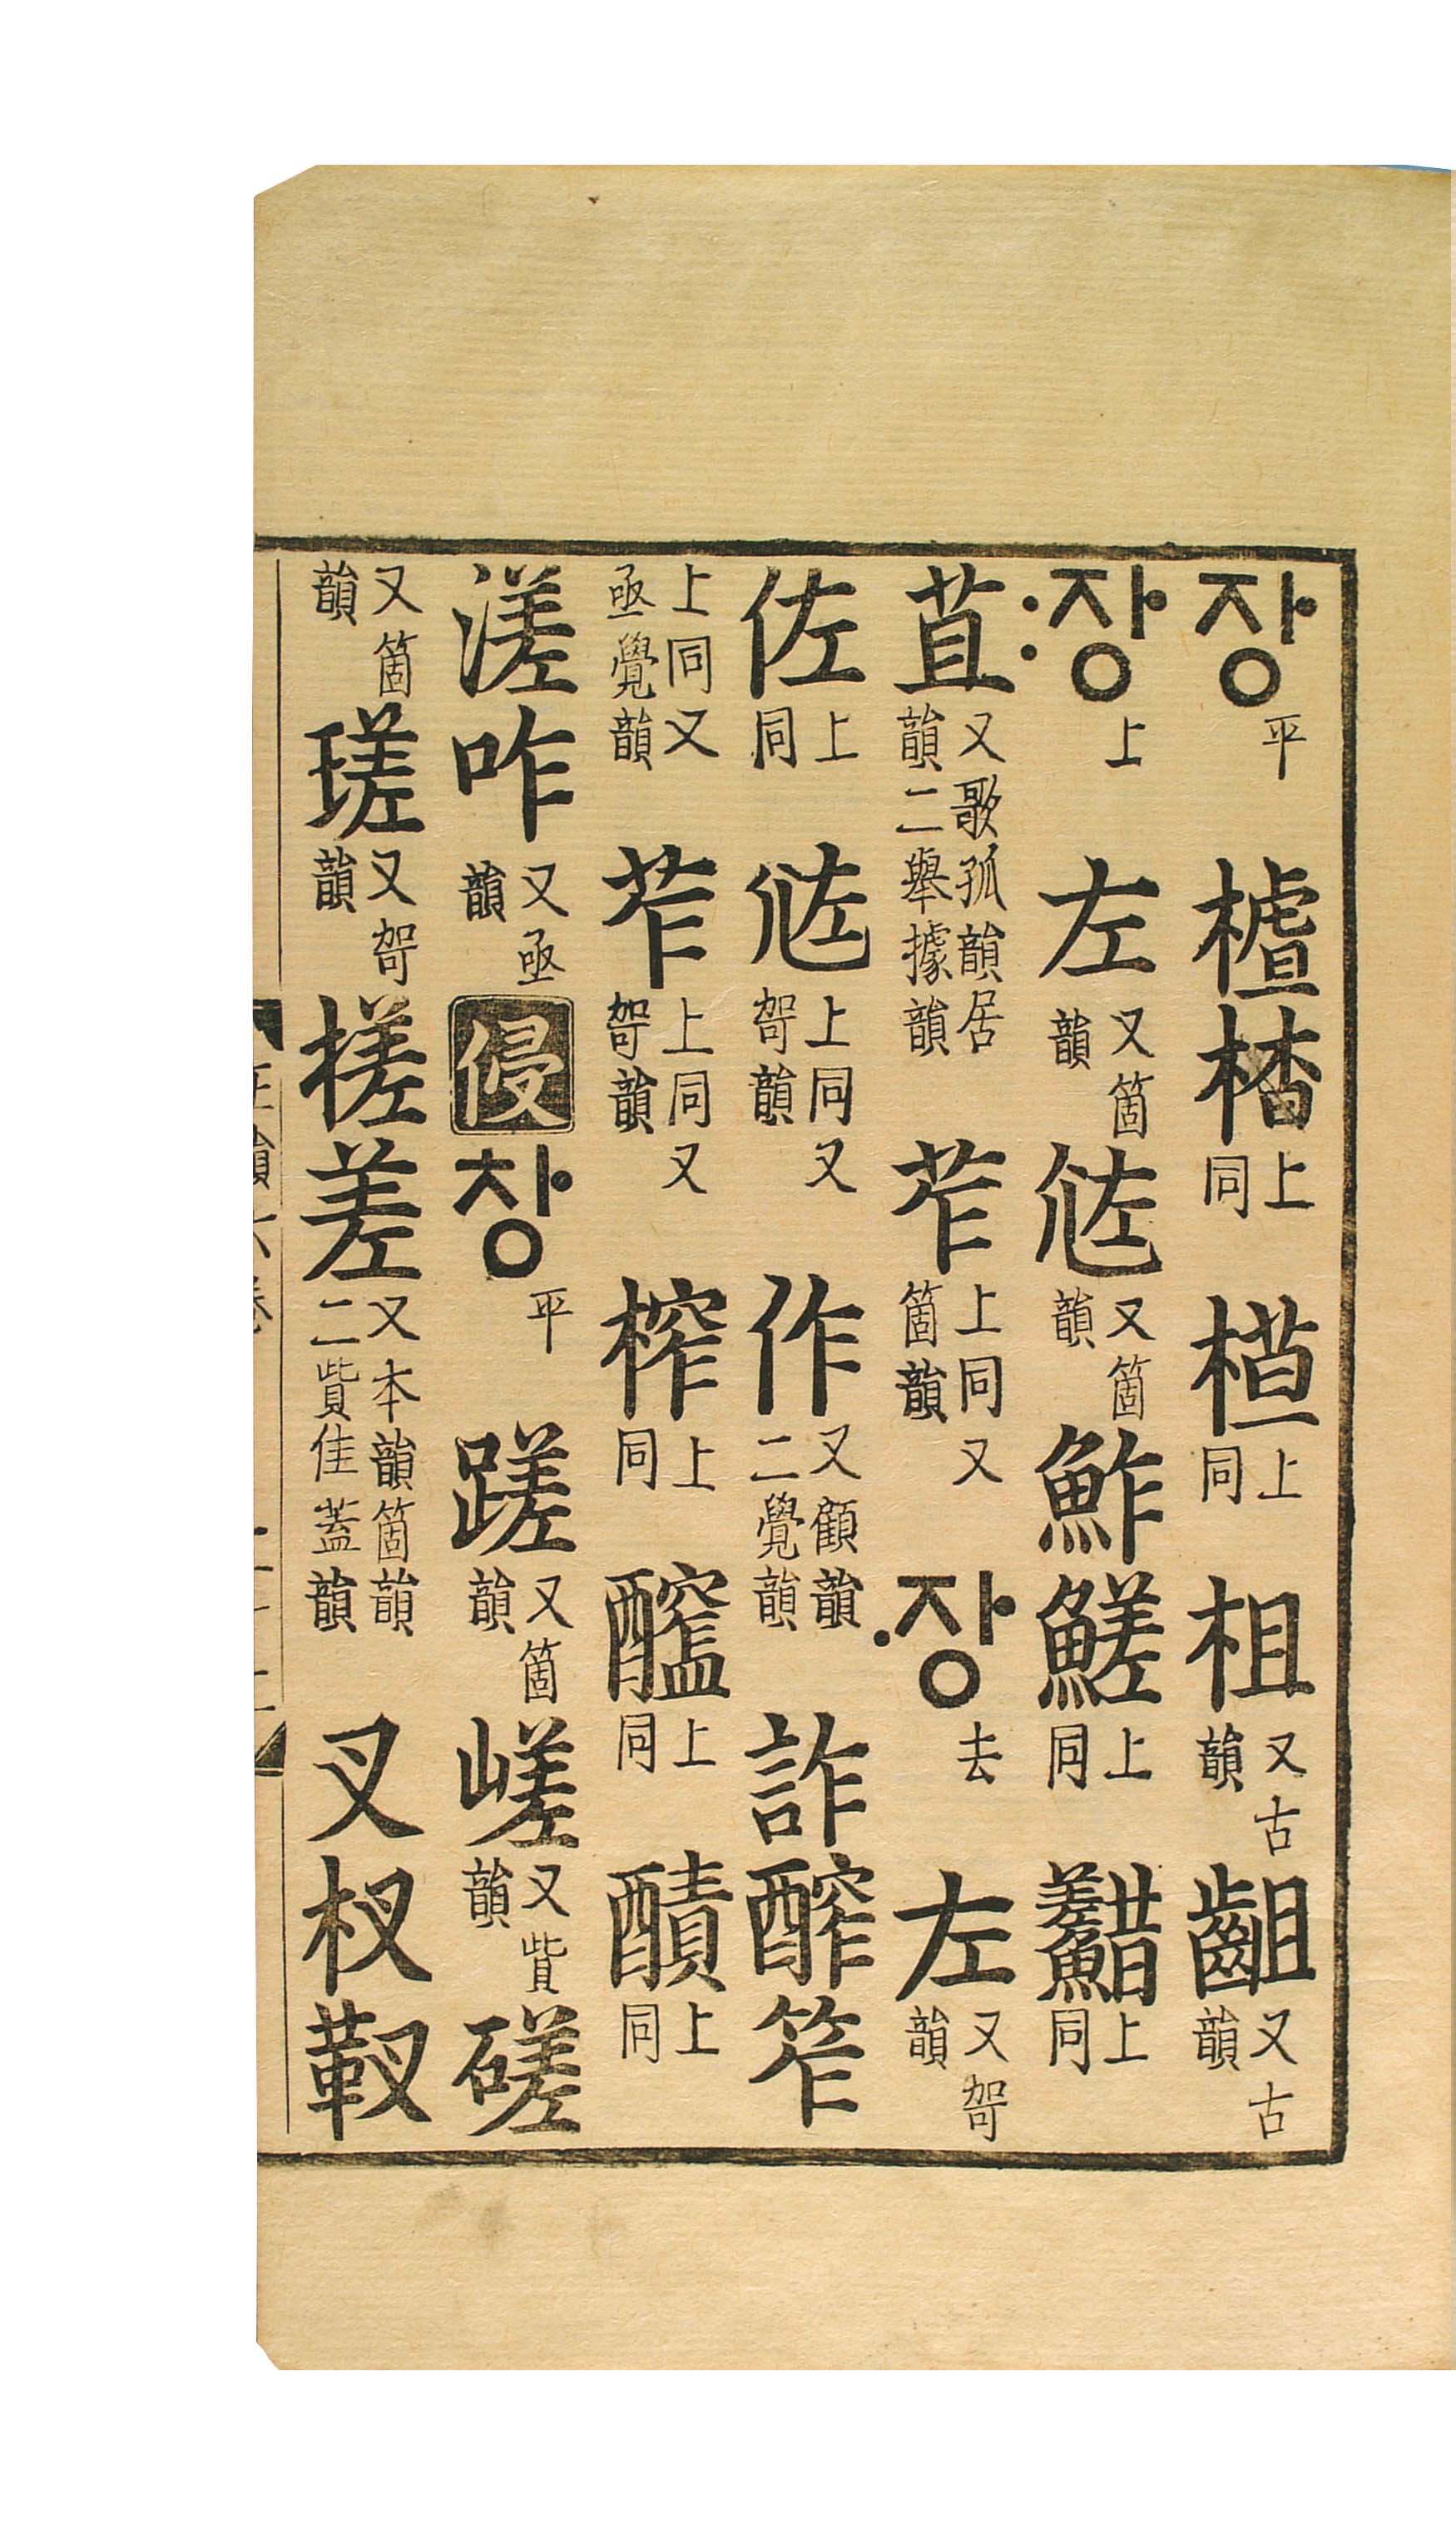 장 平 樝楂 上同 上同 柤 又古韻 齟 又古韻
장 上 左 又箇韻 又箇韻 鮓鮺 上同 上同
苴 又歌孤韻居韻二舉據韻 苲 上同又箇韻 장 去 左 又哿韻
佐 上同 上同又哿韻 作 又顧韻二覺韻 詐醡笮
上同又亟覺韻 苲 上同又哿韻 榨 上同 上同 上同
溠咋 又亟韻 侵 창 平 蹉 又箇韻 嵯 又貲韻 磋
又箇韻 瑳 又哿韻 搓差 又本韻箇韻二貲佳蓋韻 叉杈靫